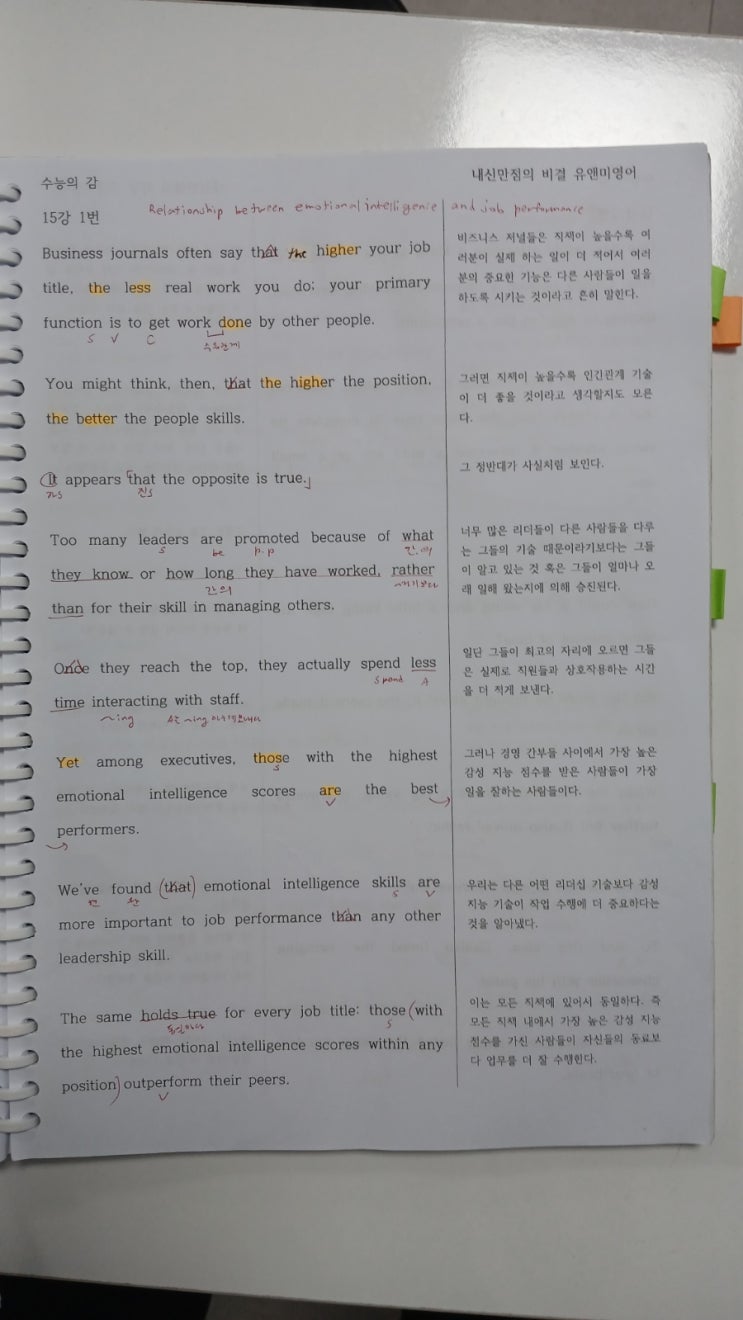 수능의 감
내신만점의 비결 유앤미영어
15강 1번
Relationship between emotional intelligence and job performance
Business journals often say that the higher your job
title, the less real work you do; your primary
function is to get work done by other people.
S V C
수동관계
비즈니스 저널들은 직책이 높을수록 여
러분이 실제 하는 일이 더 적어서 여러
분의 중요한 기능은 다른 사람들이 일을
하도록 시키는 것이라고 흔히 말한다.
You might think, then, that the higher the position,
the better the people skills.
그러면 직책이 높을수록 인간관계 기술
이 더 좋을 것이라고 생각할지도 모른
다.
It appears that the opposite is true.
가S 진S
그 정반대가 사실처럼 보인다.
Too many leaders are promoted because of what
S be p.p 간.의
they know or how long they have worked, rather
간의
than for their skill in managing others.
너무 많은 리더들이 다른 사람들을 다루
는 그들의 기술 때문이라기보다는 그들
이 알고 있는 것 혹은 그들이 얼마나 오
래 일해 왔는지에 의해 승진된다.
Once they reach the top, they actually spend less
spend A
time interacting with staff.
~ing
일단 그들이 최고의 자리에 오르면 그들
은 실제로 직원들과 상호작용하는 시간
을 더 적게 보낸다.
Yet among executives, those with the highest
S
emotional intelligence scores are the best
V
performers.
그러나 경영 간부들 사이에서 가장 높은
감성 지능 점수를 받은 사람들이 가장
일을 잘하는 사람들이다.
We've found (that) emotional intelligence skills are
S V
more important to job performance than any other
leadership skill.
우리는 다른 어떤 리더십 기술보다 감성
지능 기술이 작업 수행에 더 중요하다는
것을 알아냈다.
The same holds true for every job title: those (with
동일하다 S
the highest emotional intelligence scores within any
position) outperform their peers.
V
이는 모든 직책에 있어서 동일하다. 즉
모든 직책 내에서 가장 높은 감성 지능
점수를 가진 사람들이 자신들의 동료보
다 업무를 더 잘 수행한다.